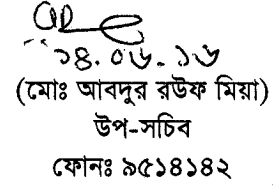 ১৪.০৬.১৬
(মোঃ আবদুর রউফ মিয়া)
উপ-সচিব
ফোনঃ ৯৫১৪১৪২